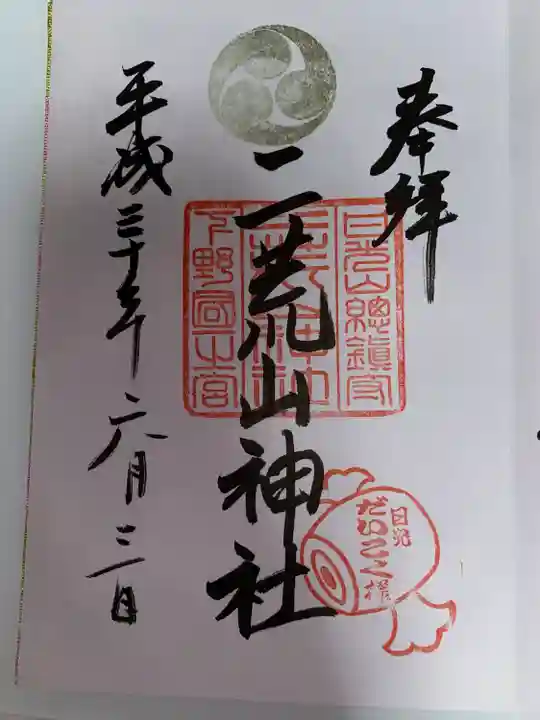 奉拝
日光山總鎮守
二荒山神社
下野國一宮
二荒山神社
日光
だいこく様
平成三十年六月三日